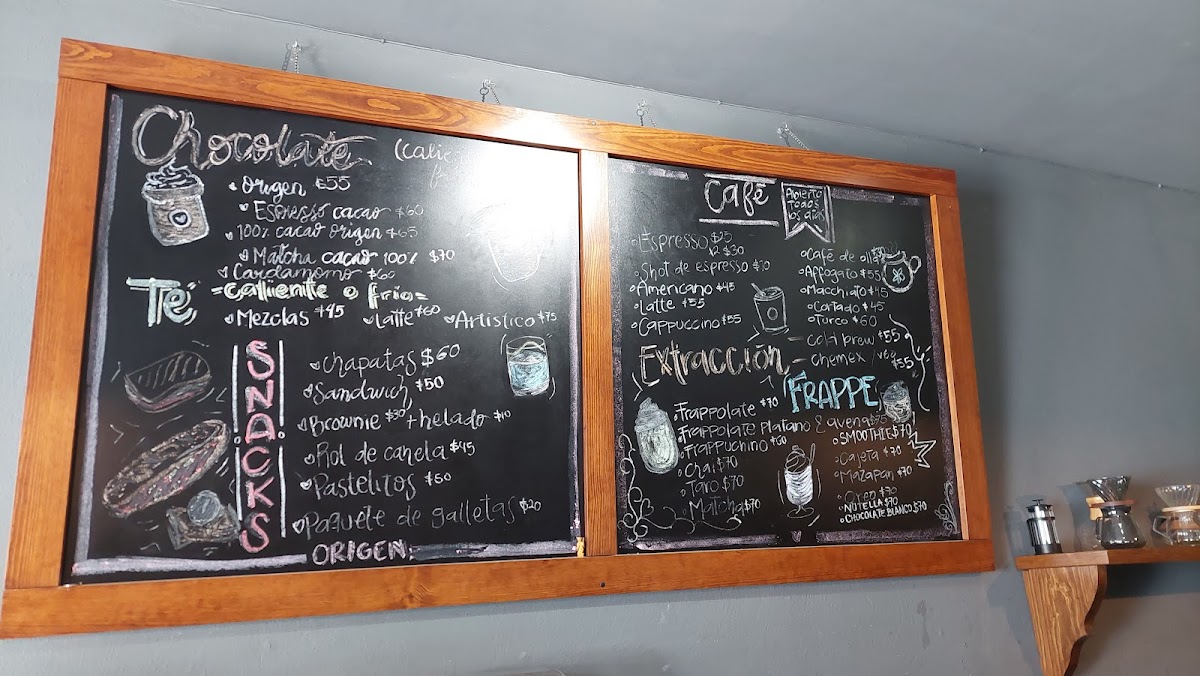 Chocolate (calie
Origen $55
Espresso cacao $60
100% cacao origen $65
Matcha cacao 100% $70
Cardamomo $60
Té =caliente o fría=
Mezclas $45 Latte $60 Artístico $75
SNACKS
Chapatas $60
Sandwich $50
Brownie $30 + helado $10
Rol de canela $45
Pastelitos $50
Paquete de galletas $20
ORIGEN
Café
Abierto
todos
los días
Espresso $25
x2 $30
Shot de espresso $10
Americano $45
Latte $55
Cappuccino $55
Café de olla
Affogato $55
Macchiato $45
Cortado $45
Turco $60
Extracción
cold brew $55
chemex / v60
$55
FRAPPE
Frappolate $70
Frappolate platano & avena $75
Frappuchino $60
Chai $70
Taro $70
Matcha $70
SMOOTHIE $70
Cajeta $70
Mazapan $70
Oreo $70
NUTELLA $70
CHOCOLATE BLANCO $70